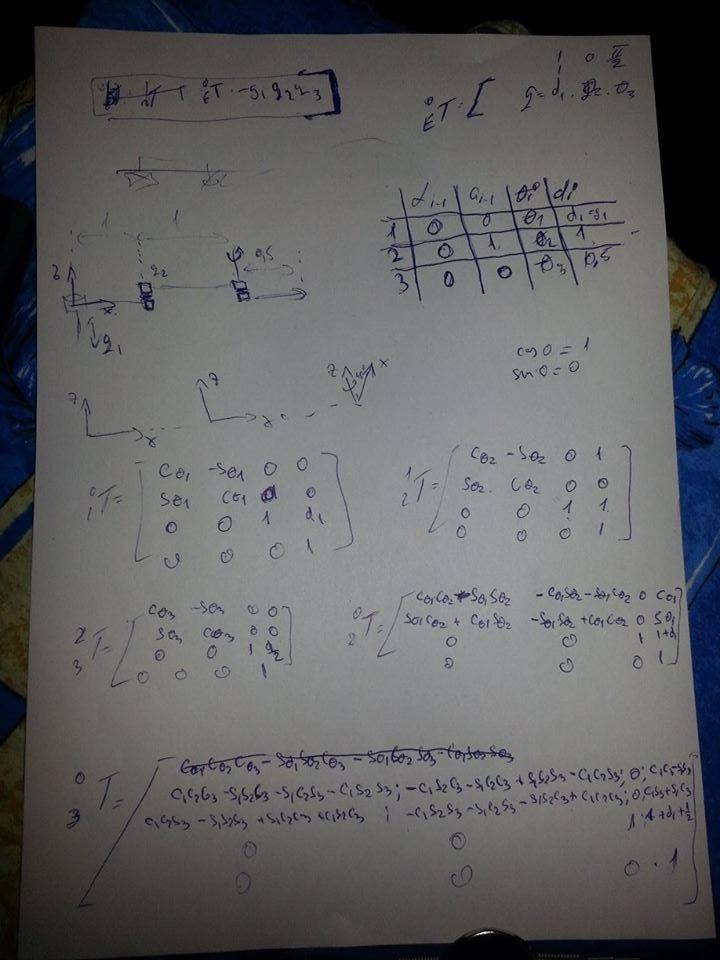 1 0 π/2
⁰ET = [ q = d₁ . q₂ . θ₃
αi-1 | ai-1 | θi | di
1 | 0 | 0 | θ1 | d1=q1
2 | 0 | 1 | θ2 | 1
3 | 0 | 0 | θ3 | 0,5
1 1
q2 0,5
z x
q1
cos 0 = 1
sin 0 = 0
z z z x
x x
⁰₁T = [ cθ1 -sθ1 0 0
sθ1 cθ1 0 0
0 0 1 d1
0 0 0 1 ]
¹₂T = [ cθ2 -sθ2 0 1
sθ2 cθ2 0 0
0 0 1 1
0 0 0 1 ]
²₃T = [ cθ3 -sθ3 0 0
sθ3 cθ3 0 0
0 0 1 1/2
0 0 0 1 ]
⁰₂T = [ cθ1cθ2 - sθ1sθ2 -cθ1sθ2 - sθ1cθ2 0 cθ1
sθ1cθ2 + cθ1sθ2 -sθ1sθ2 + cθ1cθ2 0 sθ1
0 0 1 1+d1
0 0 0 1 ]
⁰₃T = [
c1c2c3 - s1s2c3 - s1c2s3 - c1s2s3 ; -c1s2c3 - s1c2c3 + s1s2s3 - c1c2s3 ; 0 ;
c1c2s3 - s1s2s3 + s1c2c3 + c1s2c3 ; -c1s2s3 - s1c2s3 - s1s2c3 + c1c2c3 ; 0 ;
0 0 1 1+d1+1/2
0 0 0 1 ]